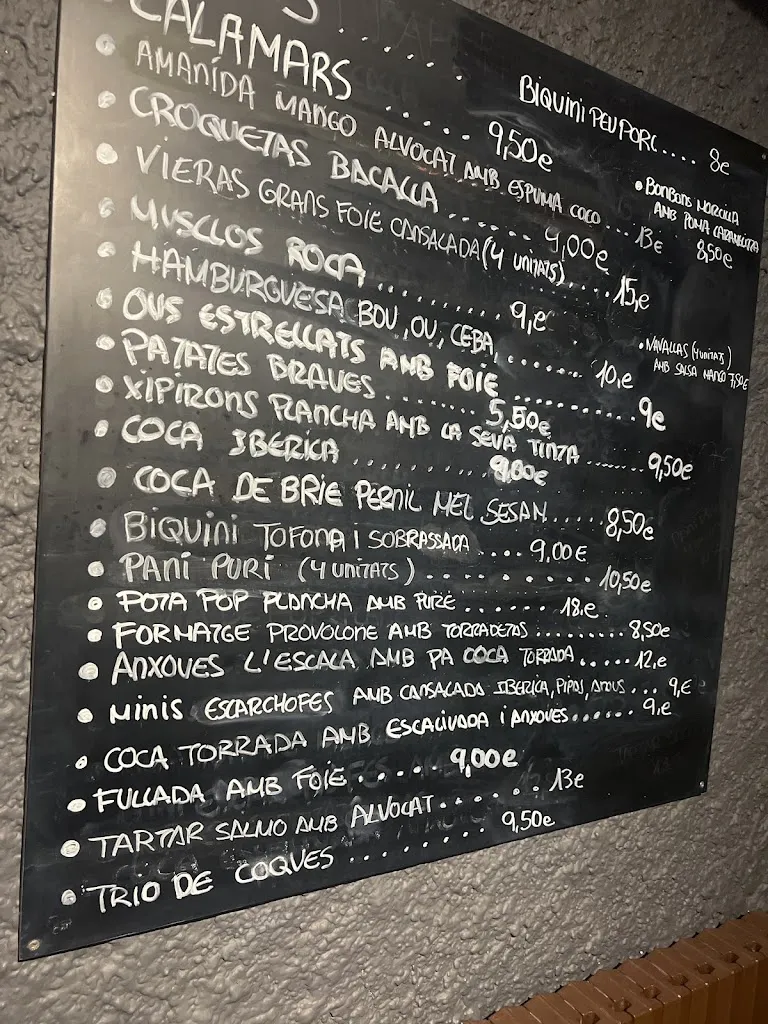 CALAMARS ..... 9,50€
• AMANÍDA MANGO ALVOCAT AMB ESPUMA COCO ... 13€
• CROQUETAS BACALLA ...... 9,00€
• VIERAS GRANS FOIE CANSALADA (4 UNITATS) .... 15,€
• MUSCLOS ROCA .......... 9,€
• HAMBURGUESA BOU, OU, CEBA, ....... 10,€
• OUS ESTRELLATS AMB FOIE ............ 9€
• PATATES BRAVES ........ 5,50€
• XIPIRONS PLANCHA AMB LA SEVA TINTA ...... 9,50€
• COCA IBERICA .......... 9,00€
• COCA DE BRIE PERNIL MEL SESAN ..... 8,50€
• BIQUINI TOFONA I SOBRASSADA .... 9,00€
• PANI PURI (4 UNITATS) .......... 10,50€
• POTA POP PLANCHA AMB PURE ...... 18,€
• FORMATGE PROVOLONE AMB TORRADETAS ......... 8,50€
• ANXOVES L'ESCALA AMB PA COCA TORRADA ..... 12,€
• MINIS ESCARCHOFES AMB CANSALADA IBERICA, PIPAS, ANOUS ... 9,€
• COCA TORRADA AMB ESCALIVADA I ANXOVES ...... 9,€
• FULLADA AMB FOIE ..... 9,00€
• TARTAR SALMO AMB ALVOCAT ...... 13€
• TRIO DE COQUES ........ 9,50€
BIQUINI PEU PORC .... 8€
• BONBONS MORCILLA
AMB POMA CARAMELITZADA 8,50€
• NAVALLAS (4 UNITATS)
AMB SALSA MANGO 7,50€